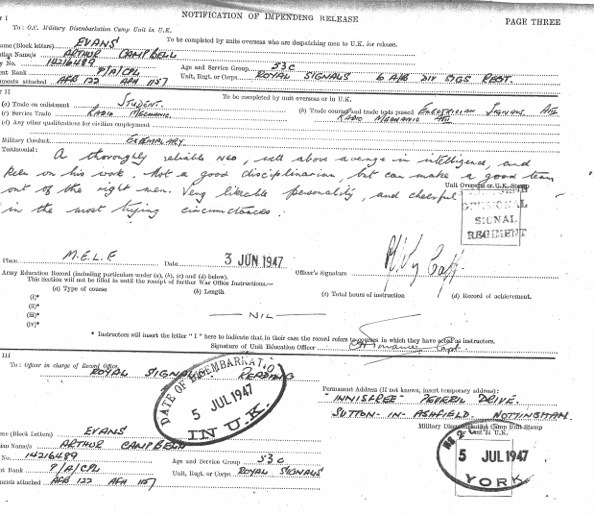 NOTIFICATION OF IMPENDING RELEASE
PAGE THREE
To: O.C. Military Disembarkation Camp Unit in U.K.
To be completed by units overseas who are despatching men to U.K. for release.
me (Block letters) EVANS
ristian Name/s ARTHUR CAMPBELL
y No. 14216489 Age and Service Group 53C
nt Rank P/A/CPL Unit, Regt. or Corps ROYAL SIGNALS 6 A/B DIV SIGS REGT.
ments attached AFB 122 AFA 1157
II To be completed by unit overseas or in U.K.
(a) Trade on enlistment STUDENT.
(b) Trade courses and trade tests passed ELECTRICIAN SIGNALS
(c) Service Trade RADIO MECHANIC RADIO MECHANIC
(d) Any other qualifications for civilian employment
Military Conduct EXEMPLARY
Testimonial: A thoroughly reliable NCO, well above average in intelligence, and
keen on his work. Not a good disciplinarian, but can make a good team
out of the right men. Very likeable personality, and cheerful
in the most trying circumstances.
Unit Overseas or U.K. Stamp
DIVISIONAL
SIGNAL
REGIMENT
Place M.E.L.F Date 3 JUN 1947 Officer's Signature
Army Education Record (including particulars under (a), (b), (c) and (d) below).
This Section will not be filled in until the receipt of further War Office Instructions—
(a) Type of course (b) Length (c) Total hours of instruction (d) Record of achievement.
(i)*
(ii)*
(iii)* — NIL —
(iv)*
* Instructors will insert the letter "I" here to indicate that in their case the record refers to courses in which they have acted as instructors.
Signature of Unit Education Officer
III
To: Officer in charge of Record Office
ROYAL SIGNALS READING
DATE OF DISEMBARKATION
5 JUL 1947
IN U.K.
Permanent Address (If not known, insert temporary address):
"INNISFREE" PEVERIL DRIVE.
SUTTON-IN-ASHFIELD. NOTTINGHAM.
Military Disembarkation Camp Unit Stamp
in U.K.
5 JUL 1947
YORK
me (Block Letters) EVANS
istian Name/s ARTHUR CAMPBELL
No. 14216489 Age and Service Group 53C
nt Rank P/A/CPL Unit, Regt. or Corps ROYAL SIGNALS
ments attached AFB 122 AFA 1157